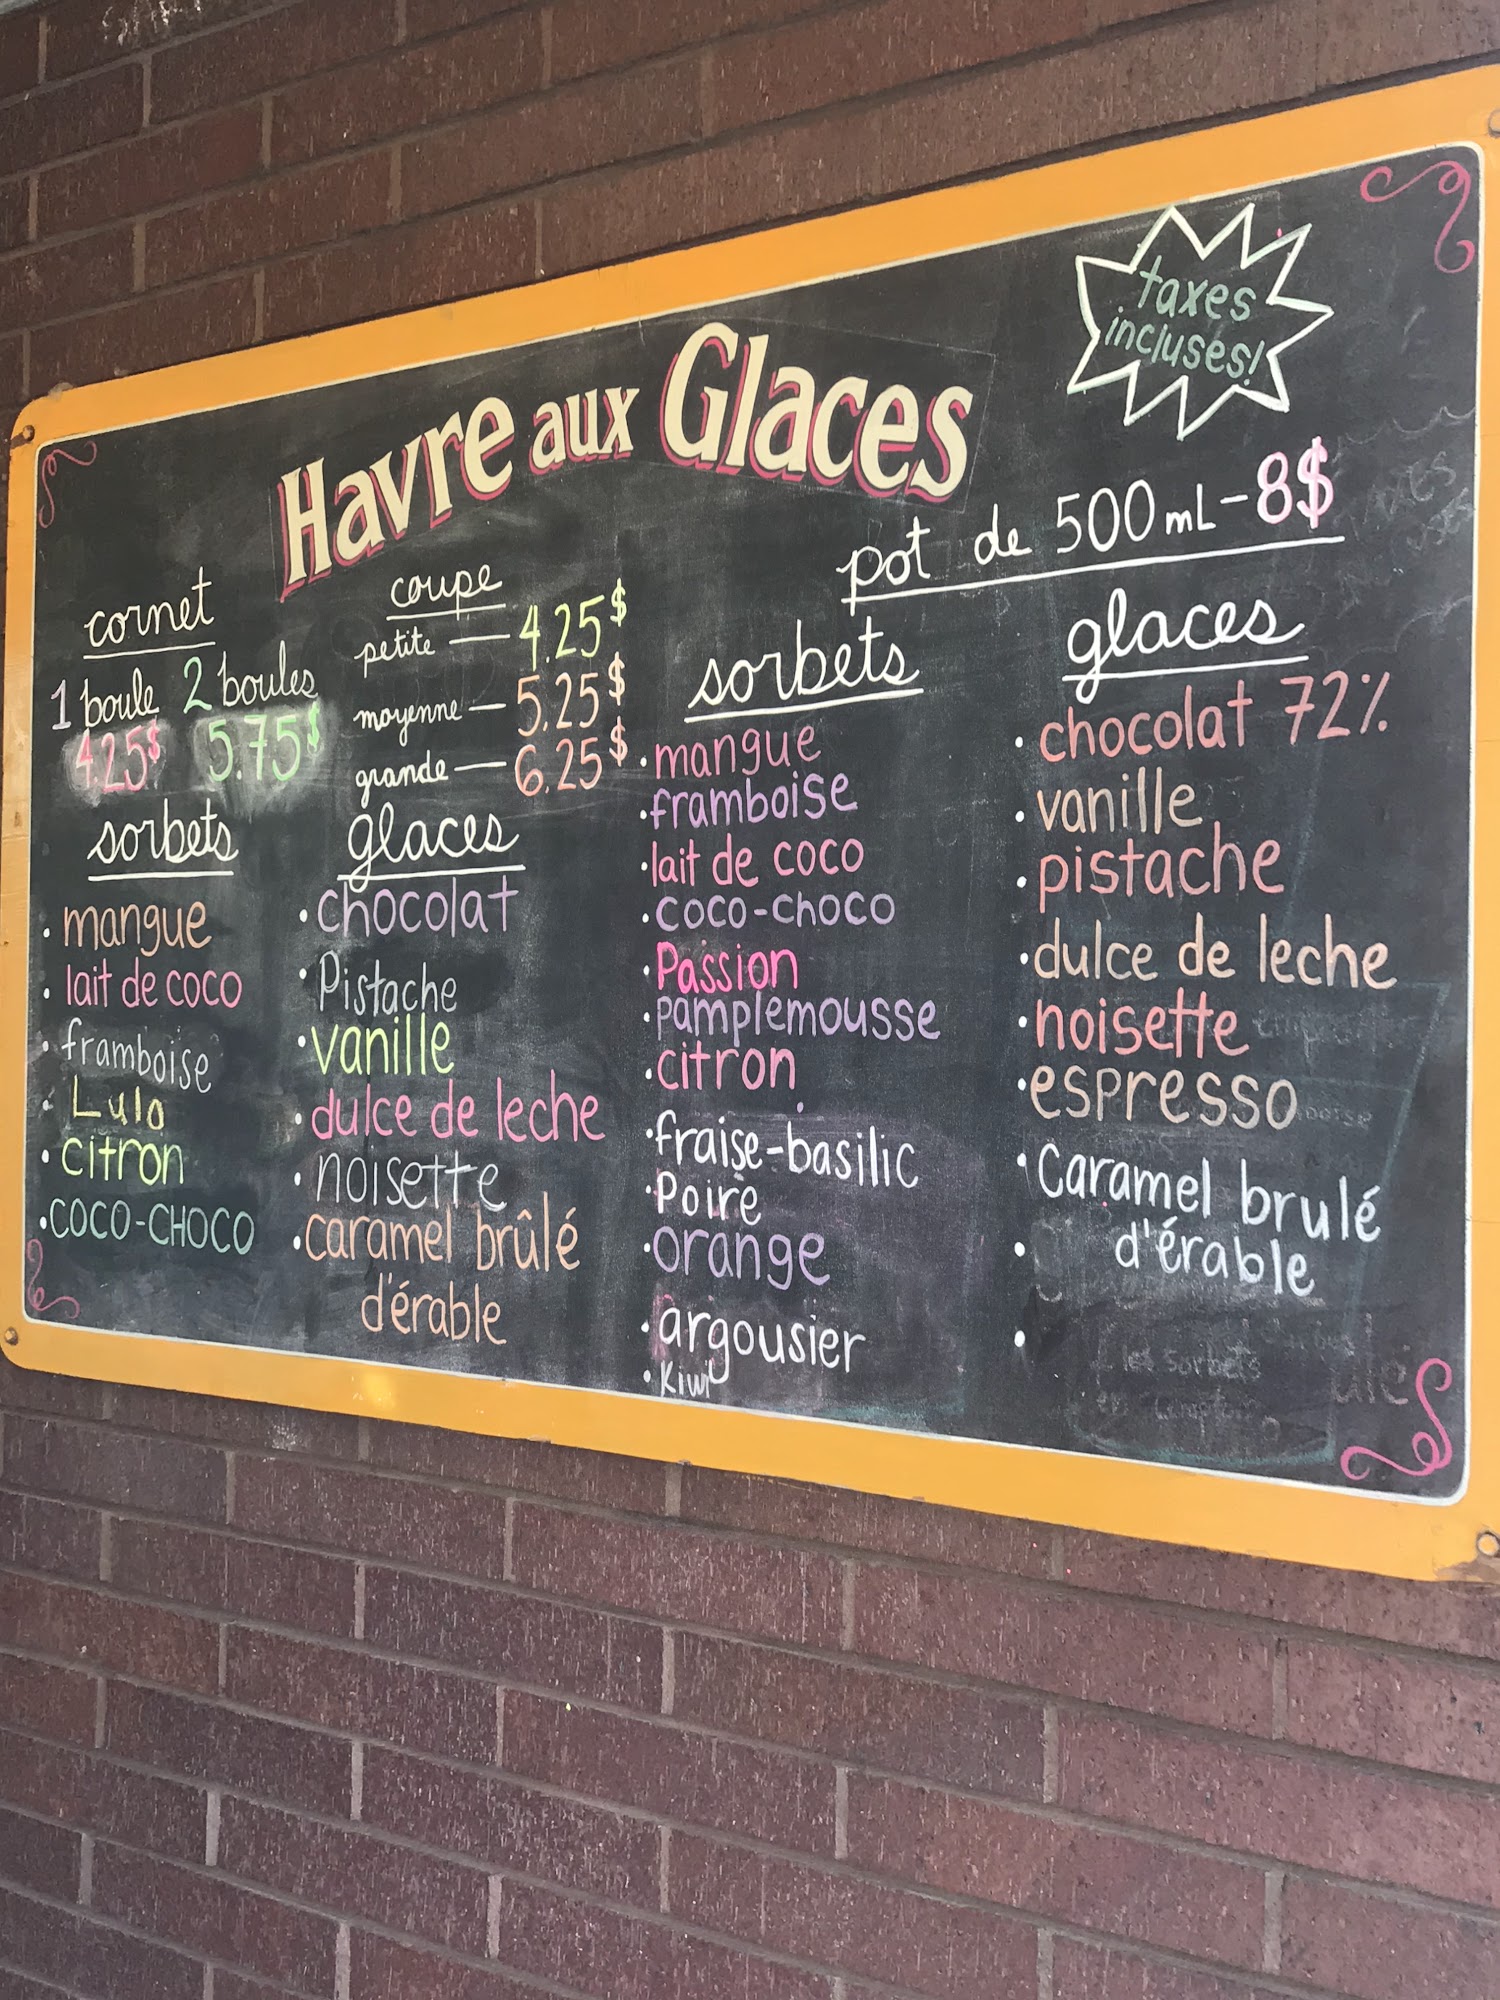 taxes
incluses!
Havre aux Glaces
pot de 500 mL - 8$
cornet
1 boule 2 boules
4.25$ 5.75$
coupe
petite — 4.25$
moyenne — 5.25$
grande — 6.25$
sorbets
• mangue
• lait de coco
• framboise
• Lulo
• citron
• COCO-CHOCO
glaces
• chocolat
• Pistache
• vanille
• dulce de leche
• noisette
• caramel brûlé
d'érable
sorbets
• mangue
• framboise
• lait de coco
• coco-choco
• Passion
• pamplemousse
• citron
• fraise-basilic
• Poire
• orange
• argousier
• Kiwi
glaces
• chocolat 72%
• vanille
• pistache
• dulce de leche
• noisette
• espresso
• Caramel brulé
• d'érable
•